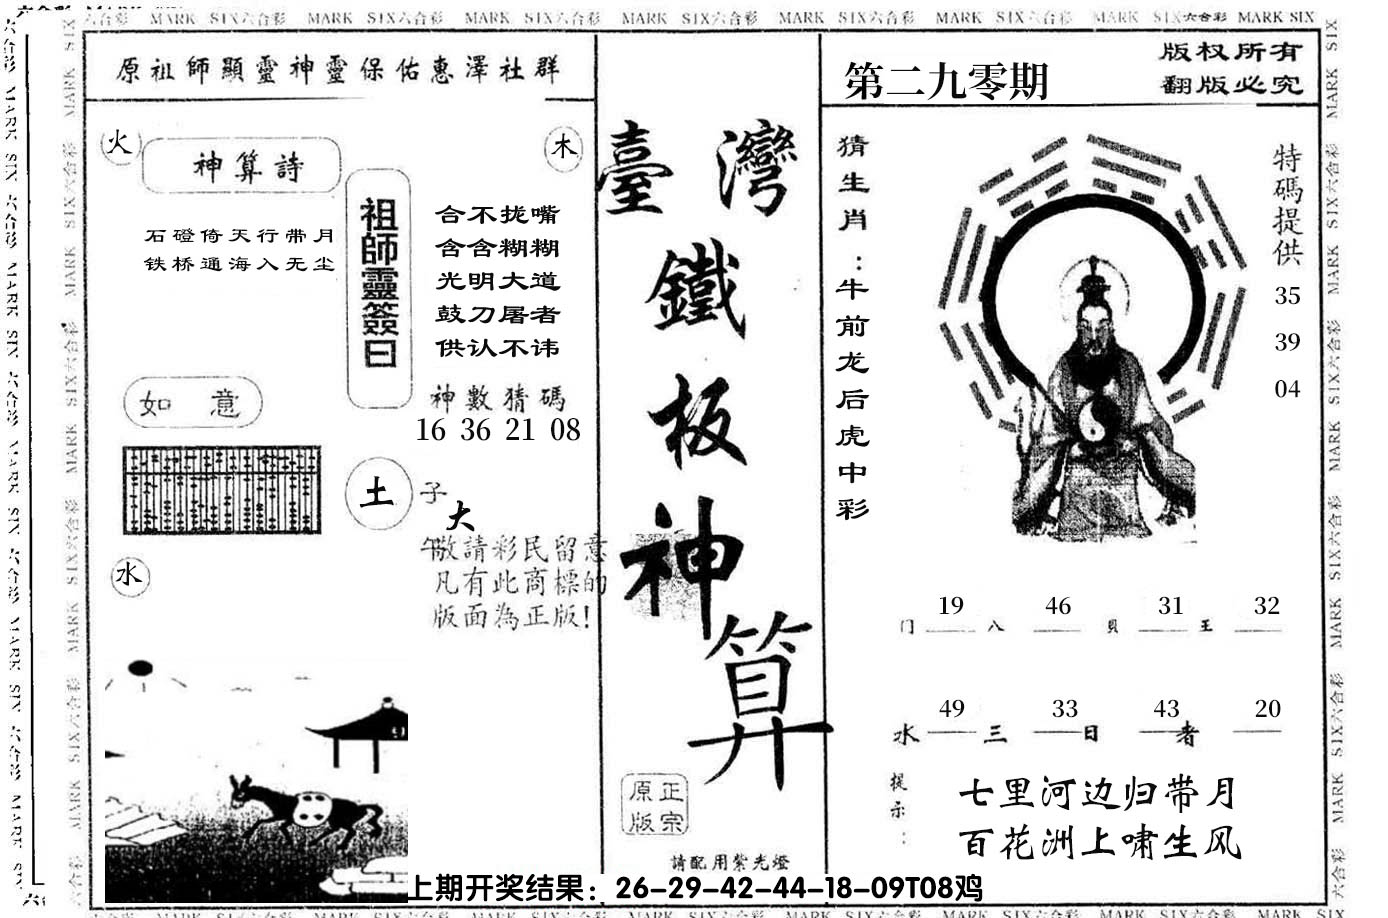 MARK SIX六合彩 MARK SIX六合彩 MARK SIX六合彩 MARK SIX六合彩 MARK SIX六合彩 MARK SIX六合彩 MARK SIX六合彩 MARK SIX
原祖師顯靈神靈保佑惠澤社群
火
神算詩
木
石磴倚天行带月
铁桥通海入无尘
祖師靈簽曰
合不拢嘴
含含糊糊
光明大道
鼓刀屠者
供认不讳
神數猜碼
16 36 21 08
如 意
土
子
大
午
敬請彩民留意
凡有此商標的
版面為正版!
水
臺灣
鐵
板
神
算
原正
版宗
請配用紫光燈
第二九零期
版权所有
翻版必究
猜生肖:牛前龙后虎中彩
特碼提供
35
39
04
19 46 31 32
门 八 貝 王
49 33 43 20
水 三 日 者
提示:
七里河边归带月
百花洲上啸生风
上期开奖结果：26-29-42-44-18-09T08鸡